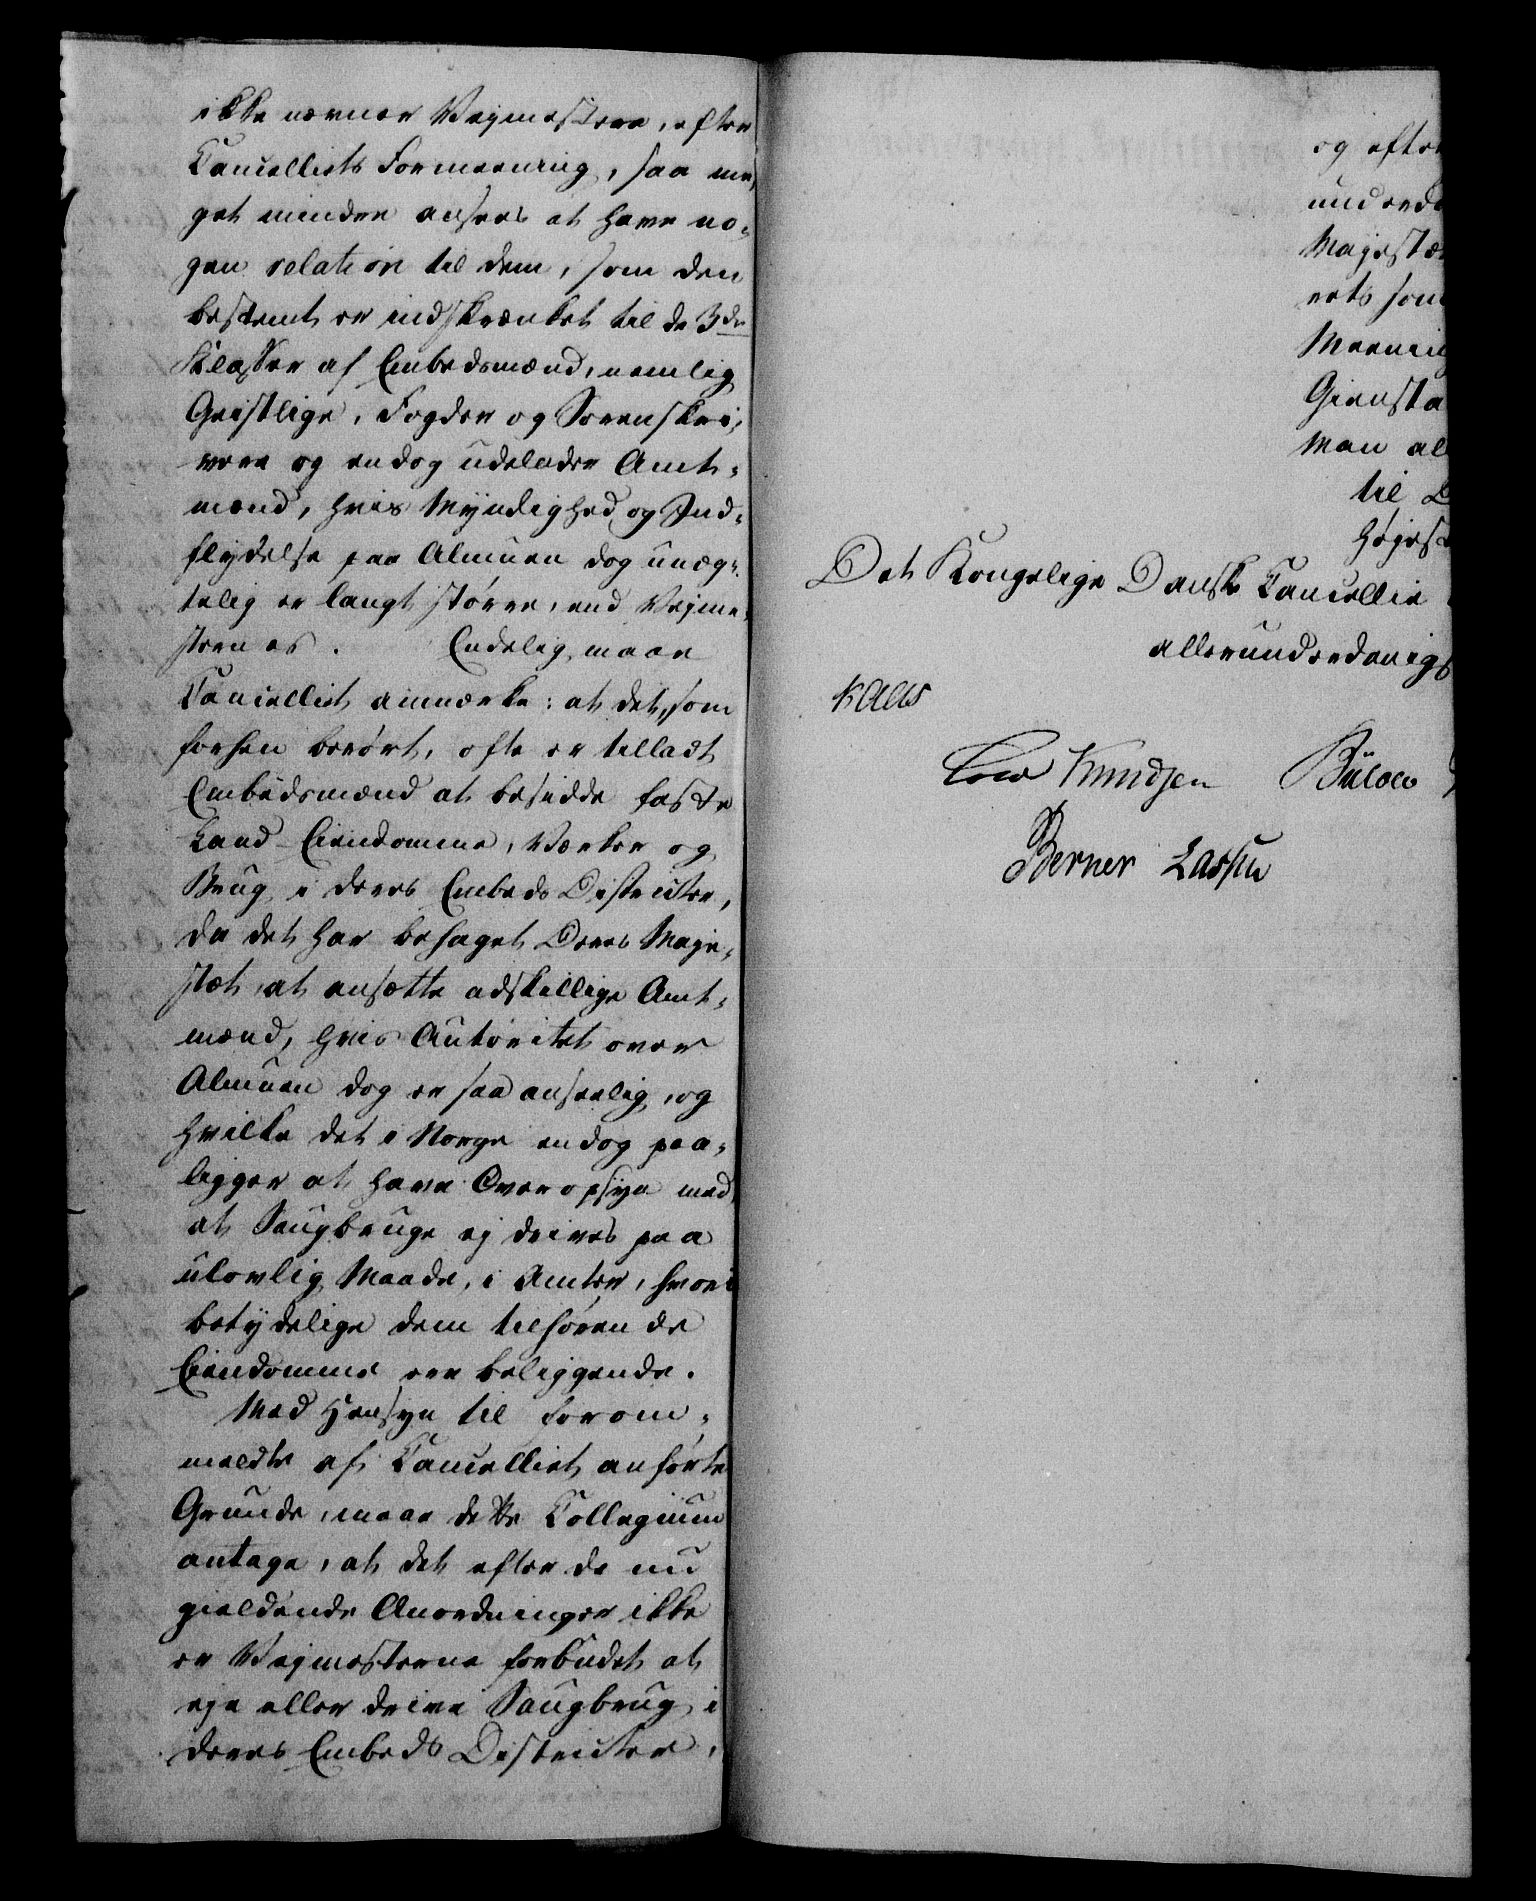 ikke nævner Vejmestere, efter
Cancelliets Formeening, saa me¬
get mindre ansees at have no¬
gen relation til dem, som den
bestemt er indskrænket til de 3de
Klasser af Embedsmænd, nemlig
Geistlige, Fogder og Sorenskri¬
vere og endog udelader Amt¬
mænd, hvis Myndighed og Ind¬
flydelse paa Almuen dog unæg¬
telig er langt større, end Vejme¬
sternes. Endelig maae
Cancelliet anmærke: at det, som
forhen berørt, ofte er tilladt
Embedsmænd at besidde faste
Land-Eiendomme, Værker og
Brug i deres Embeds Districter,
da det har behaget Deres Maje¬
stæt, at ansætte adskillige Amt¬
mænd, hvis Autoritet over
Almuen dog er saa anseelig, og
hvilke det i Norge endog paa¬
ligger at have Overopsyn med,
at Saugbruge ej drives paa
ulovlig Maade, i Amter, hvori
betydelige dem tilhørende
Eiendomme ere beliggende.
Med Hensyn til forom¬
meldte af Cancelliet anførte
Grunde, maae dette Collegium
antage, at det efter de nu
gieldende Anordninger ikke
er Vejmesterne forbudet at
eje eller drive Saugbrug i
deres Embeds Districter,
og efter
underda
Majestæ
erts som
Meening
Giensta
Man al
til D
Højest
Det Kongelige Danske Cancellie
allerunderdanigs
Kaas
Knudsen Bülow
Berner Lassen